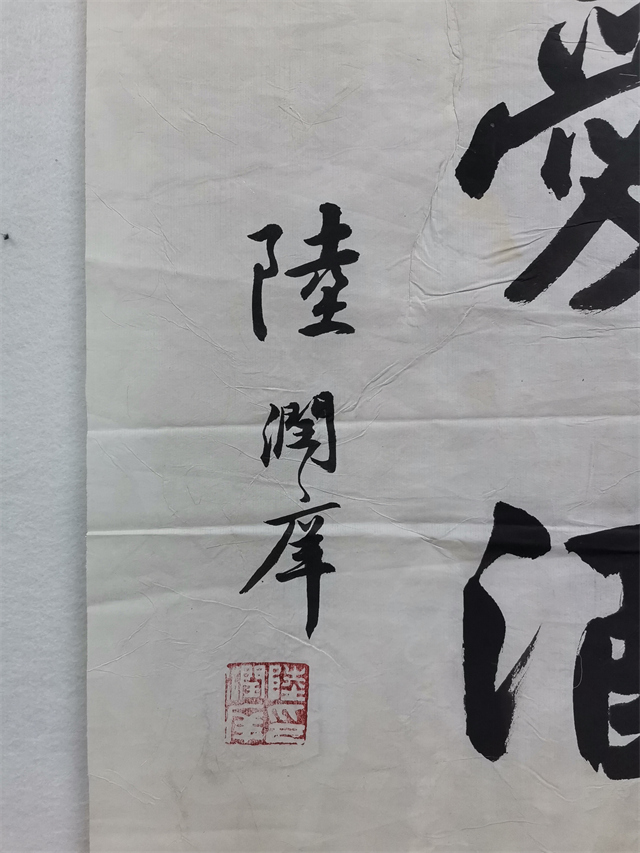 陸潤庠
陸印潤庠